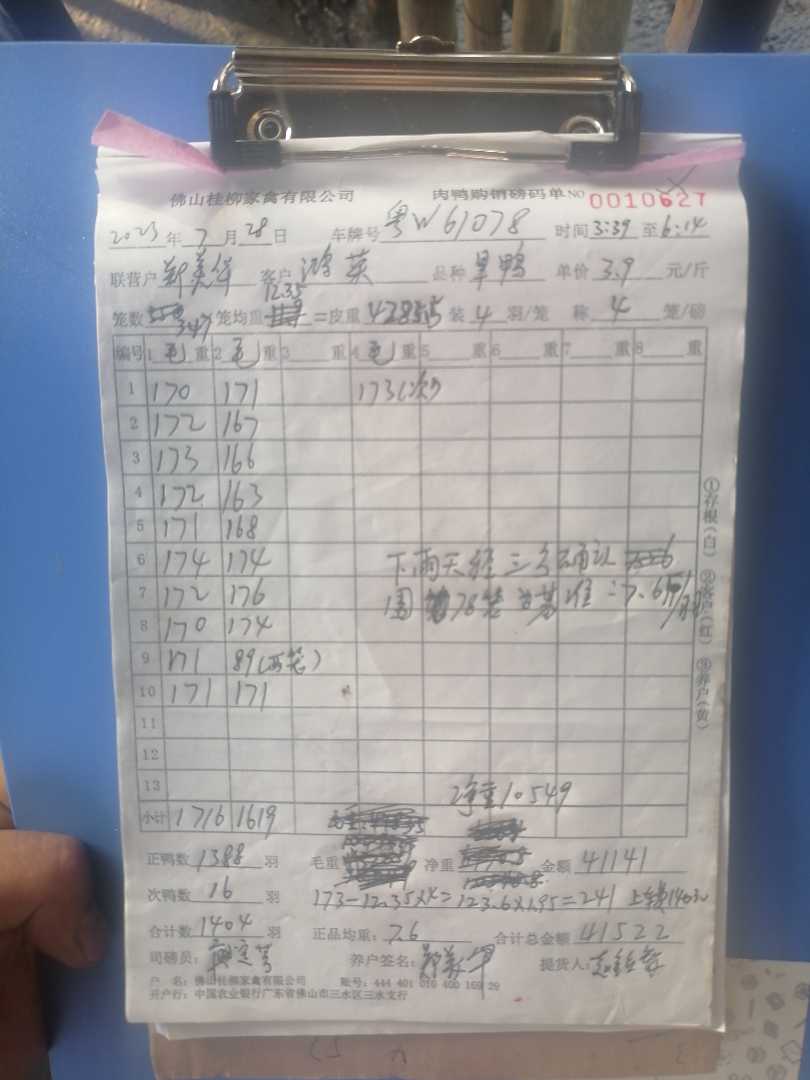 佛山桂柳家禽有限公司 肉鸭购销磅码单 NO 0010627
2023年7月28日 车牌号 粤W61078 时间 3:39 至 6:14
联营户 郑美华 客户 鸿英 品种 旱鸭 单价 3.9 元/斤
12.35
笼数 347 笼均重 = 皮重 4285.5 装 4 羽/笼 称 4 笼/磅
编号 1 毛重 2 毛重 3 重 4 毛重 5 重 6 重 7 重 8 重
1 170 171 173(次)
2 172 167
3 173 166
4 172 163
5 171 168
6 174 174
下雨天经三方确认
7 172 176
8 170 174
9 171 89(两笼)
10 171 171
11
12
13
净重10549
小计 1716 1619
正鸭数 1388 羽 毛重 净重 金额 41141
次鸭数 16 羽 173-12.35×4=123.6×1.95=241 上车费140元
合计数 1404 羽 正品均重: 7.6 合计总金额 41522
司磅员: 养户签名: 郑美华 提货人:
户 名: 佛山桂柳家禽有限公司 账号: 444 401 010 400 169 29
开户行: 中国农业银行广东省佛山市三水区三水支行
①存根(白) ②客户(红) ③养户(黄)